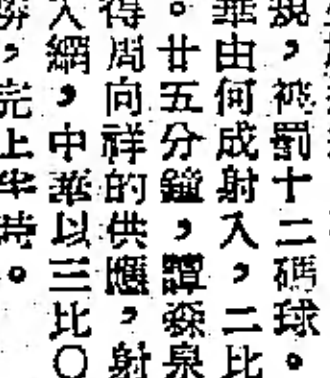 規，被罰十二碼球。
華由何成射入，二比
。廿五分鐘，譚森泉
得周向祥的供應，射
入網，中華以三比〇
勝，完上半時。